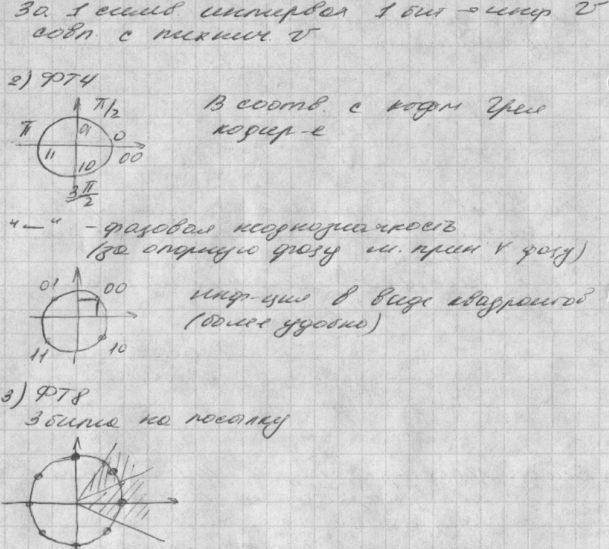 За 1 симв интервал 1 бит → инф V
совп. с технич. V
2) ФТ4
π/2
π 01 0
11 00
10
3π/2
В соотв. с кодом Грея
кодир-е
"—" - фазовая неоднозначность
(за опорную фазу м. прин ∀ фазу)
01 00
11 10
инф-ция в виде квадрантов
(более удобно)
3) ФТ8
3 бита на посылку